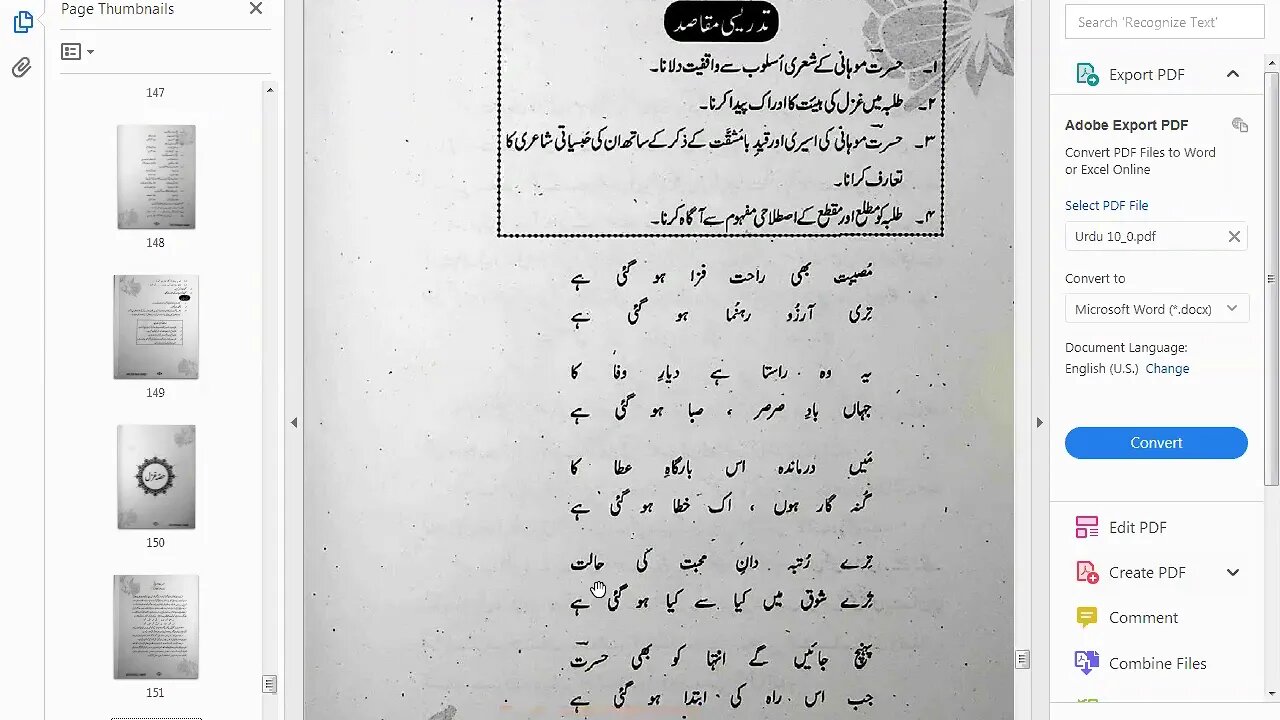 Page Thumbnails
147
148
149
150
حصہ غزل
151
تدریسی مقاصد
۱۔ حسرتؔ موہانی کے شعری اُسلوب سے واقفیت دلانا۔
۲۔ طلبہ میں غزل کی ہیئت کا ادراک پیدا کرنا۔
۳۔ حسرتؔ موہانی کی اسیری اور قیدِ بامشقّت کے ذکر کے ساتھ ان کی حَبسیاتی شاعری کا
تعارف کرانا۔
۴۔ طلبہ کو مطلع اور مقطع کے اصطلاحی مفہوم سے آگاہ کرنا۔
مُصیبت بھی راحت فزا ہو گئی ہے
تِری آرزُو رہنُما ہو گئی ہے
یہ وہ راستا ہے دیارِ وفا کا
جہاں بادِ صرصر ، صبا ہو گئی ہے
مَیں درماندہ اس بارگاہِ عطا کا
گُنہ گار ہوں ، اک خطا ہو گئی ہے
تِرے رُتبہ دانِ محبت کی حالت
تِرے شوق میں کیا سے کیا ہو گئی ہے
پہنچ جائیں گے انتہا کو بھی حسرتؔ
جب اس راہ کی ابتدا ہو گئی ہے
Search 'Recognize Text'
Export PDF
Adobe Export PDF
Convert PDF Files to Word
or Excel Online
Select PDF File
Urdu 10_0.pdf
Convert to
Microsoft Word (*.docx)
Document Language:
English (U.S.) Change
Convert
Edit PDF
Create PDF
Comment
Combine Files